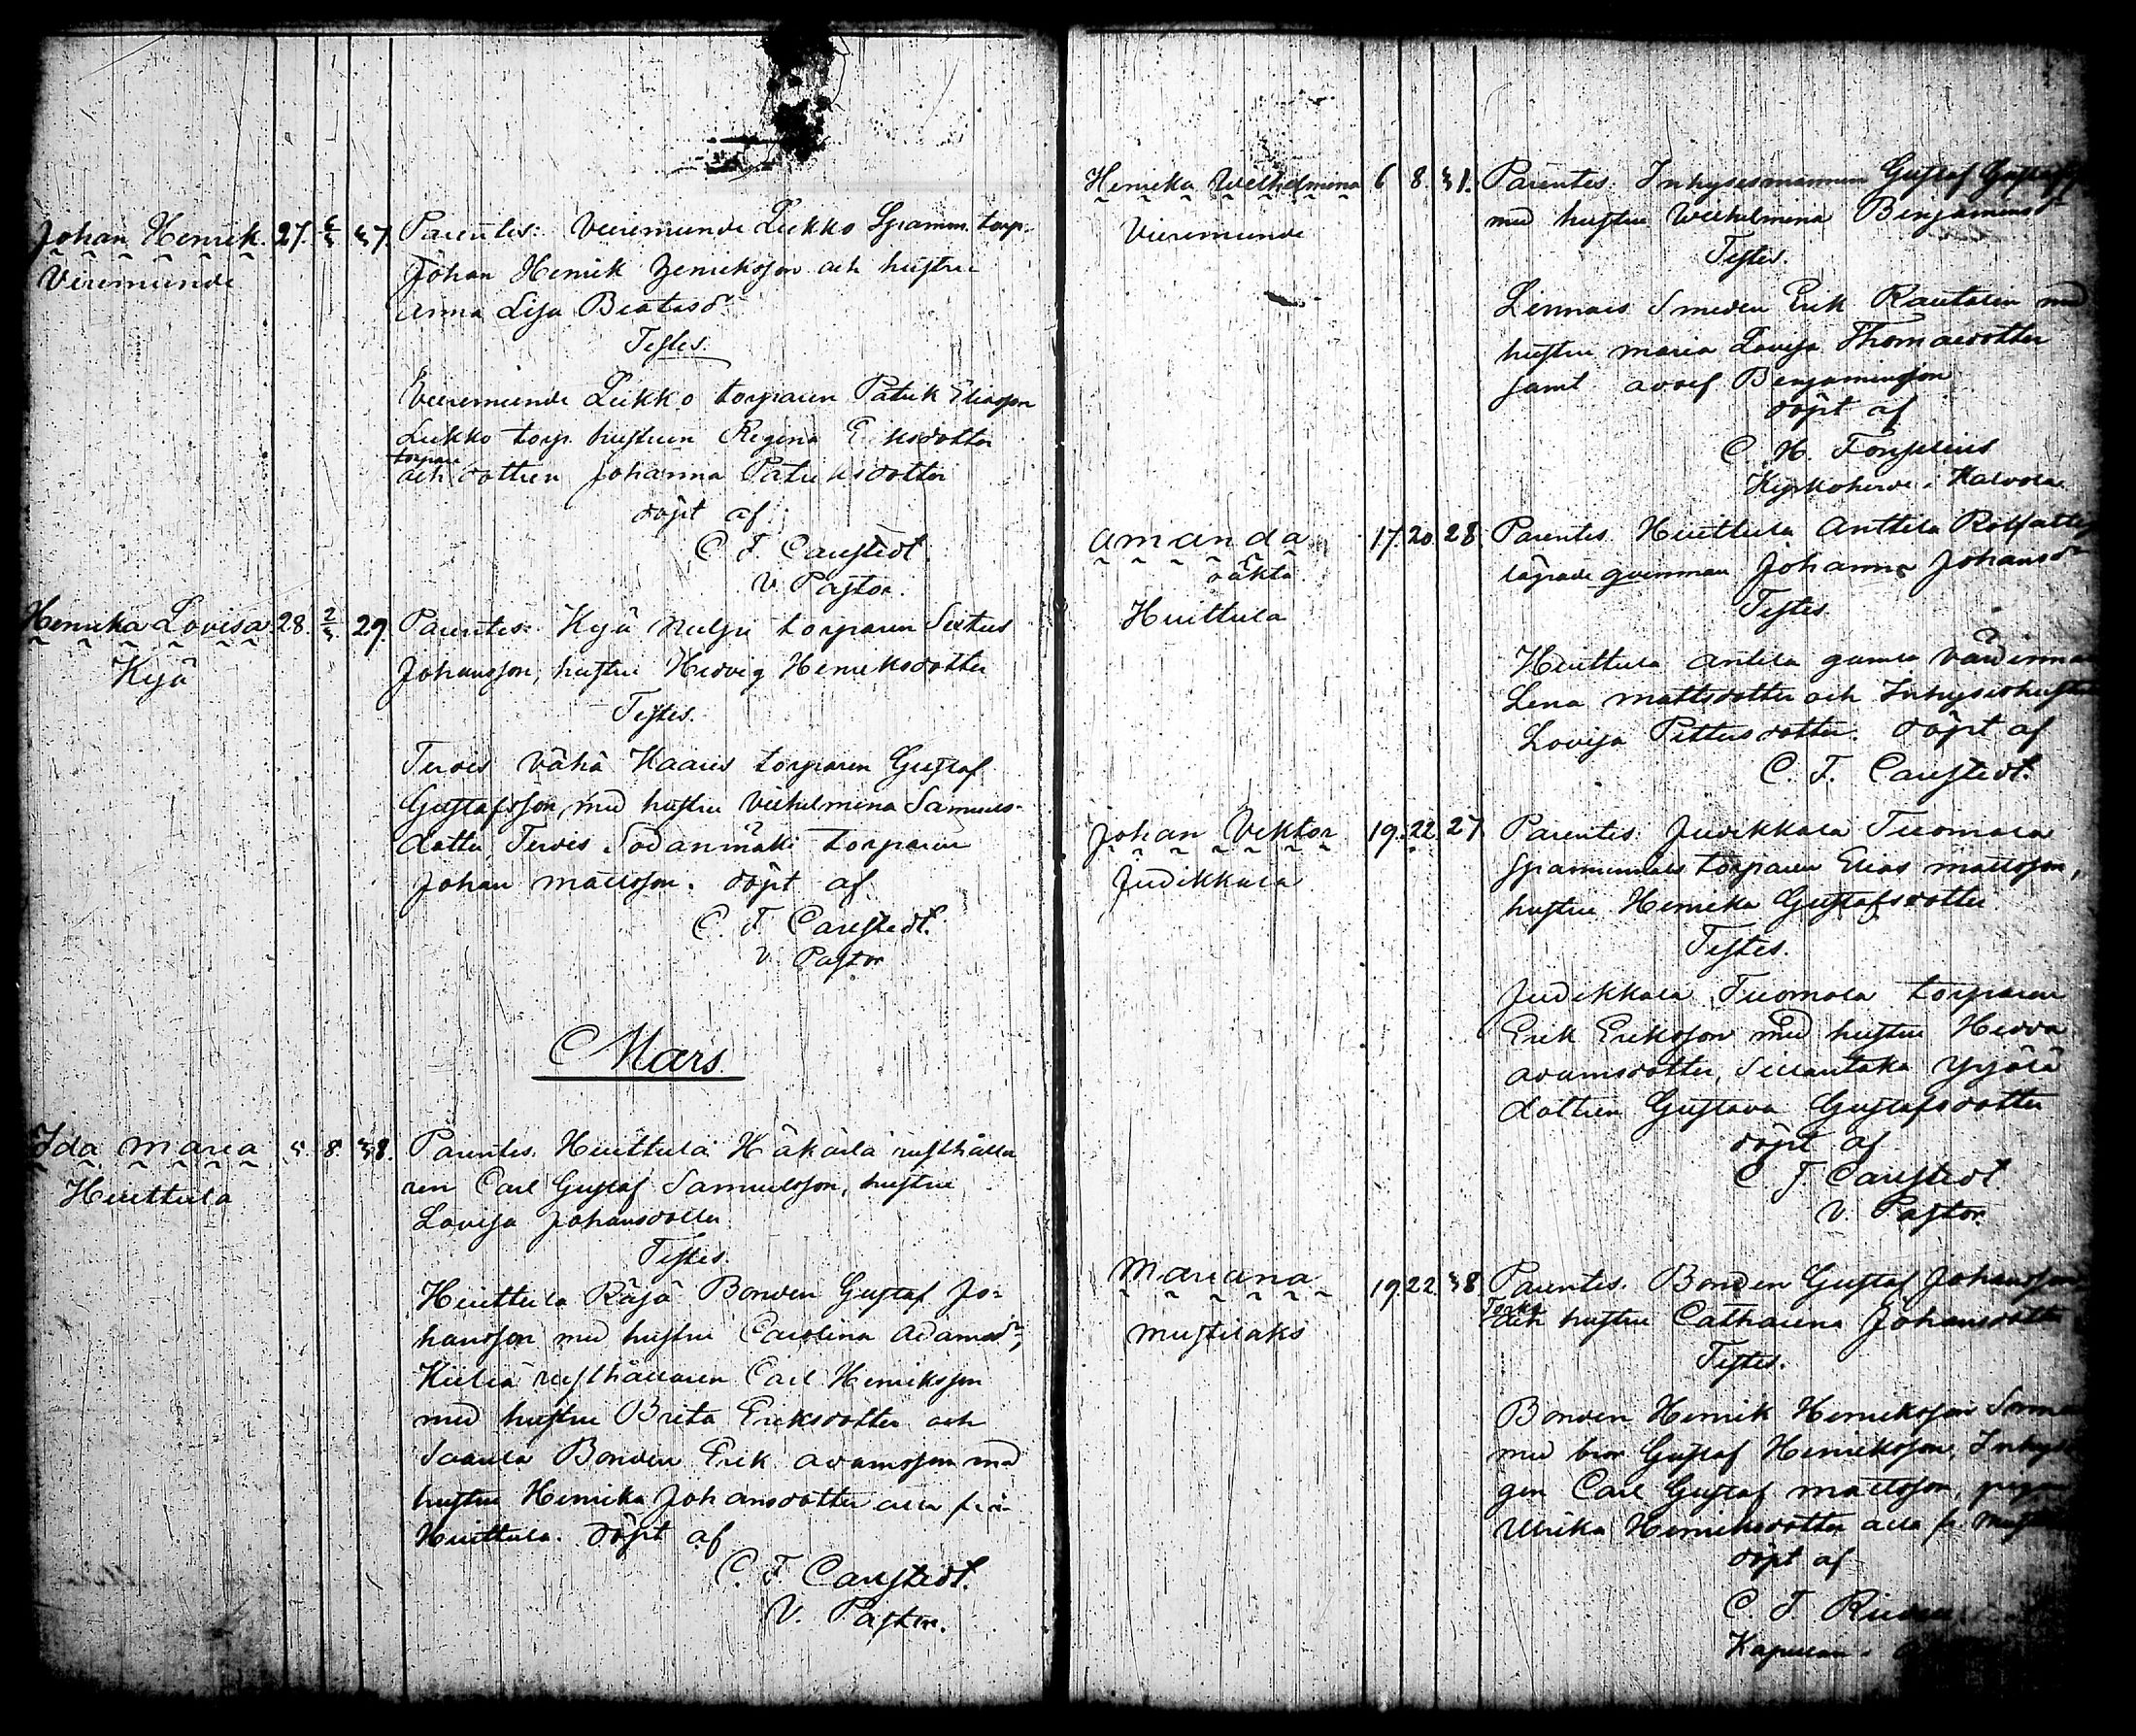 Johan Henrik. 27. 6/3 37.
Vieremunde
Parentes: Vieremunde Lukko Spannm. torp.
Johan Henrik Henriksson och hustru
Anna Lisa Beatasdr
Testes.
Vieremunde Lukko torparen Patrik Eliasson
Lukko torp. hustrun Regina E ksdotter
torpare
och dottren Johanna Patriksdotter
döpt af
C. F. Carstedt.
V. Pastor.
Henrika Lovisa 28. 2/3 29.
Kyä
Parentes: Kyä torparen
Johansson, hustru Hedvig Henriksdotter
Testes.
Tervis Vähä Kaaris torparen Gustaf
Gustafsson, med hustru Vilhelmina Samuels-
dotter, Tervis Sodanmäki torparen
Johan Mattsson. döpt af
C. F. Carstedt.
V. Pastor
Mars
Ida Maria 5. 8. 38.
Huittula
Parentes. Huittula Häkärlä rusthålla
ren Carl Gustaf Samuelsson, hustru
Lovisa Johansdotter
Testes.
Huittula Räjä Bonden Gustaf Jo-
hansson med hustru Carolina Adamsdr,
rusthållaren Carl Henriksson
med hustru Brita Eriksdotter och
Saarela Bonden Erik Adamsson med
hustru Henrika Johansdotter alla från
Huittula. döpt af
C. F. Carstedt.
V. Pastor.
Henrika Wilhelmina 6 8. 31.
Vieremunde
Parentes: Inhysesmannen Gustaf
med hustru Wilhelmina Benjaminsdr
Testes.
Linnais Smeden Erik Rautalin med
hustru Maria Lovisa Thomasdotter
samt Adolf Benjaminsson
döpt af
C. H. Fonselius
Kyrkoherde i Kalvola.
Amanda 17. 20. 28.
oäkta
Huittula
Parentes. Huittula Anttila
lägrade qvinnan Johanna Johansdr
Testes
Huittula Antila gamla värdinnan
Lena Mattsdotter och Inhyseshustrun
Lovisa Pettersdotter. döpt af
C. F. Carstedt.
Johan Viktor 19. 22. 27
Judikkala
Parentes: Judikkala Tuomola
Spannmåls torparen Elias Mattsson,
hustru Henrika Gustafsdotter
Testes.
Judikkala Tuomola torparen
Erik Eriksson med hustru Hedda
Adamsdotter, Sillantaka Yrjölä
dottren Gustava Gustafsdotter
döpt af
C. F. Carstedt
V. Pastor.
Mariana 19. 22. 38
Mustilaks
Parentes. Bonden Gustaf Johansson
och hustru Catharina Johansdotter
Testes.
Bonden Henrik Henriksson
med bror Gustaf Henriksson,
gen Carl Gustaf Mattsson, pigan
Ulrika Henriksdotter alla fr.
döpt af
C. F.
Kapellan